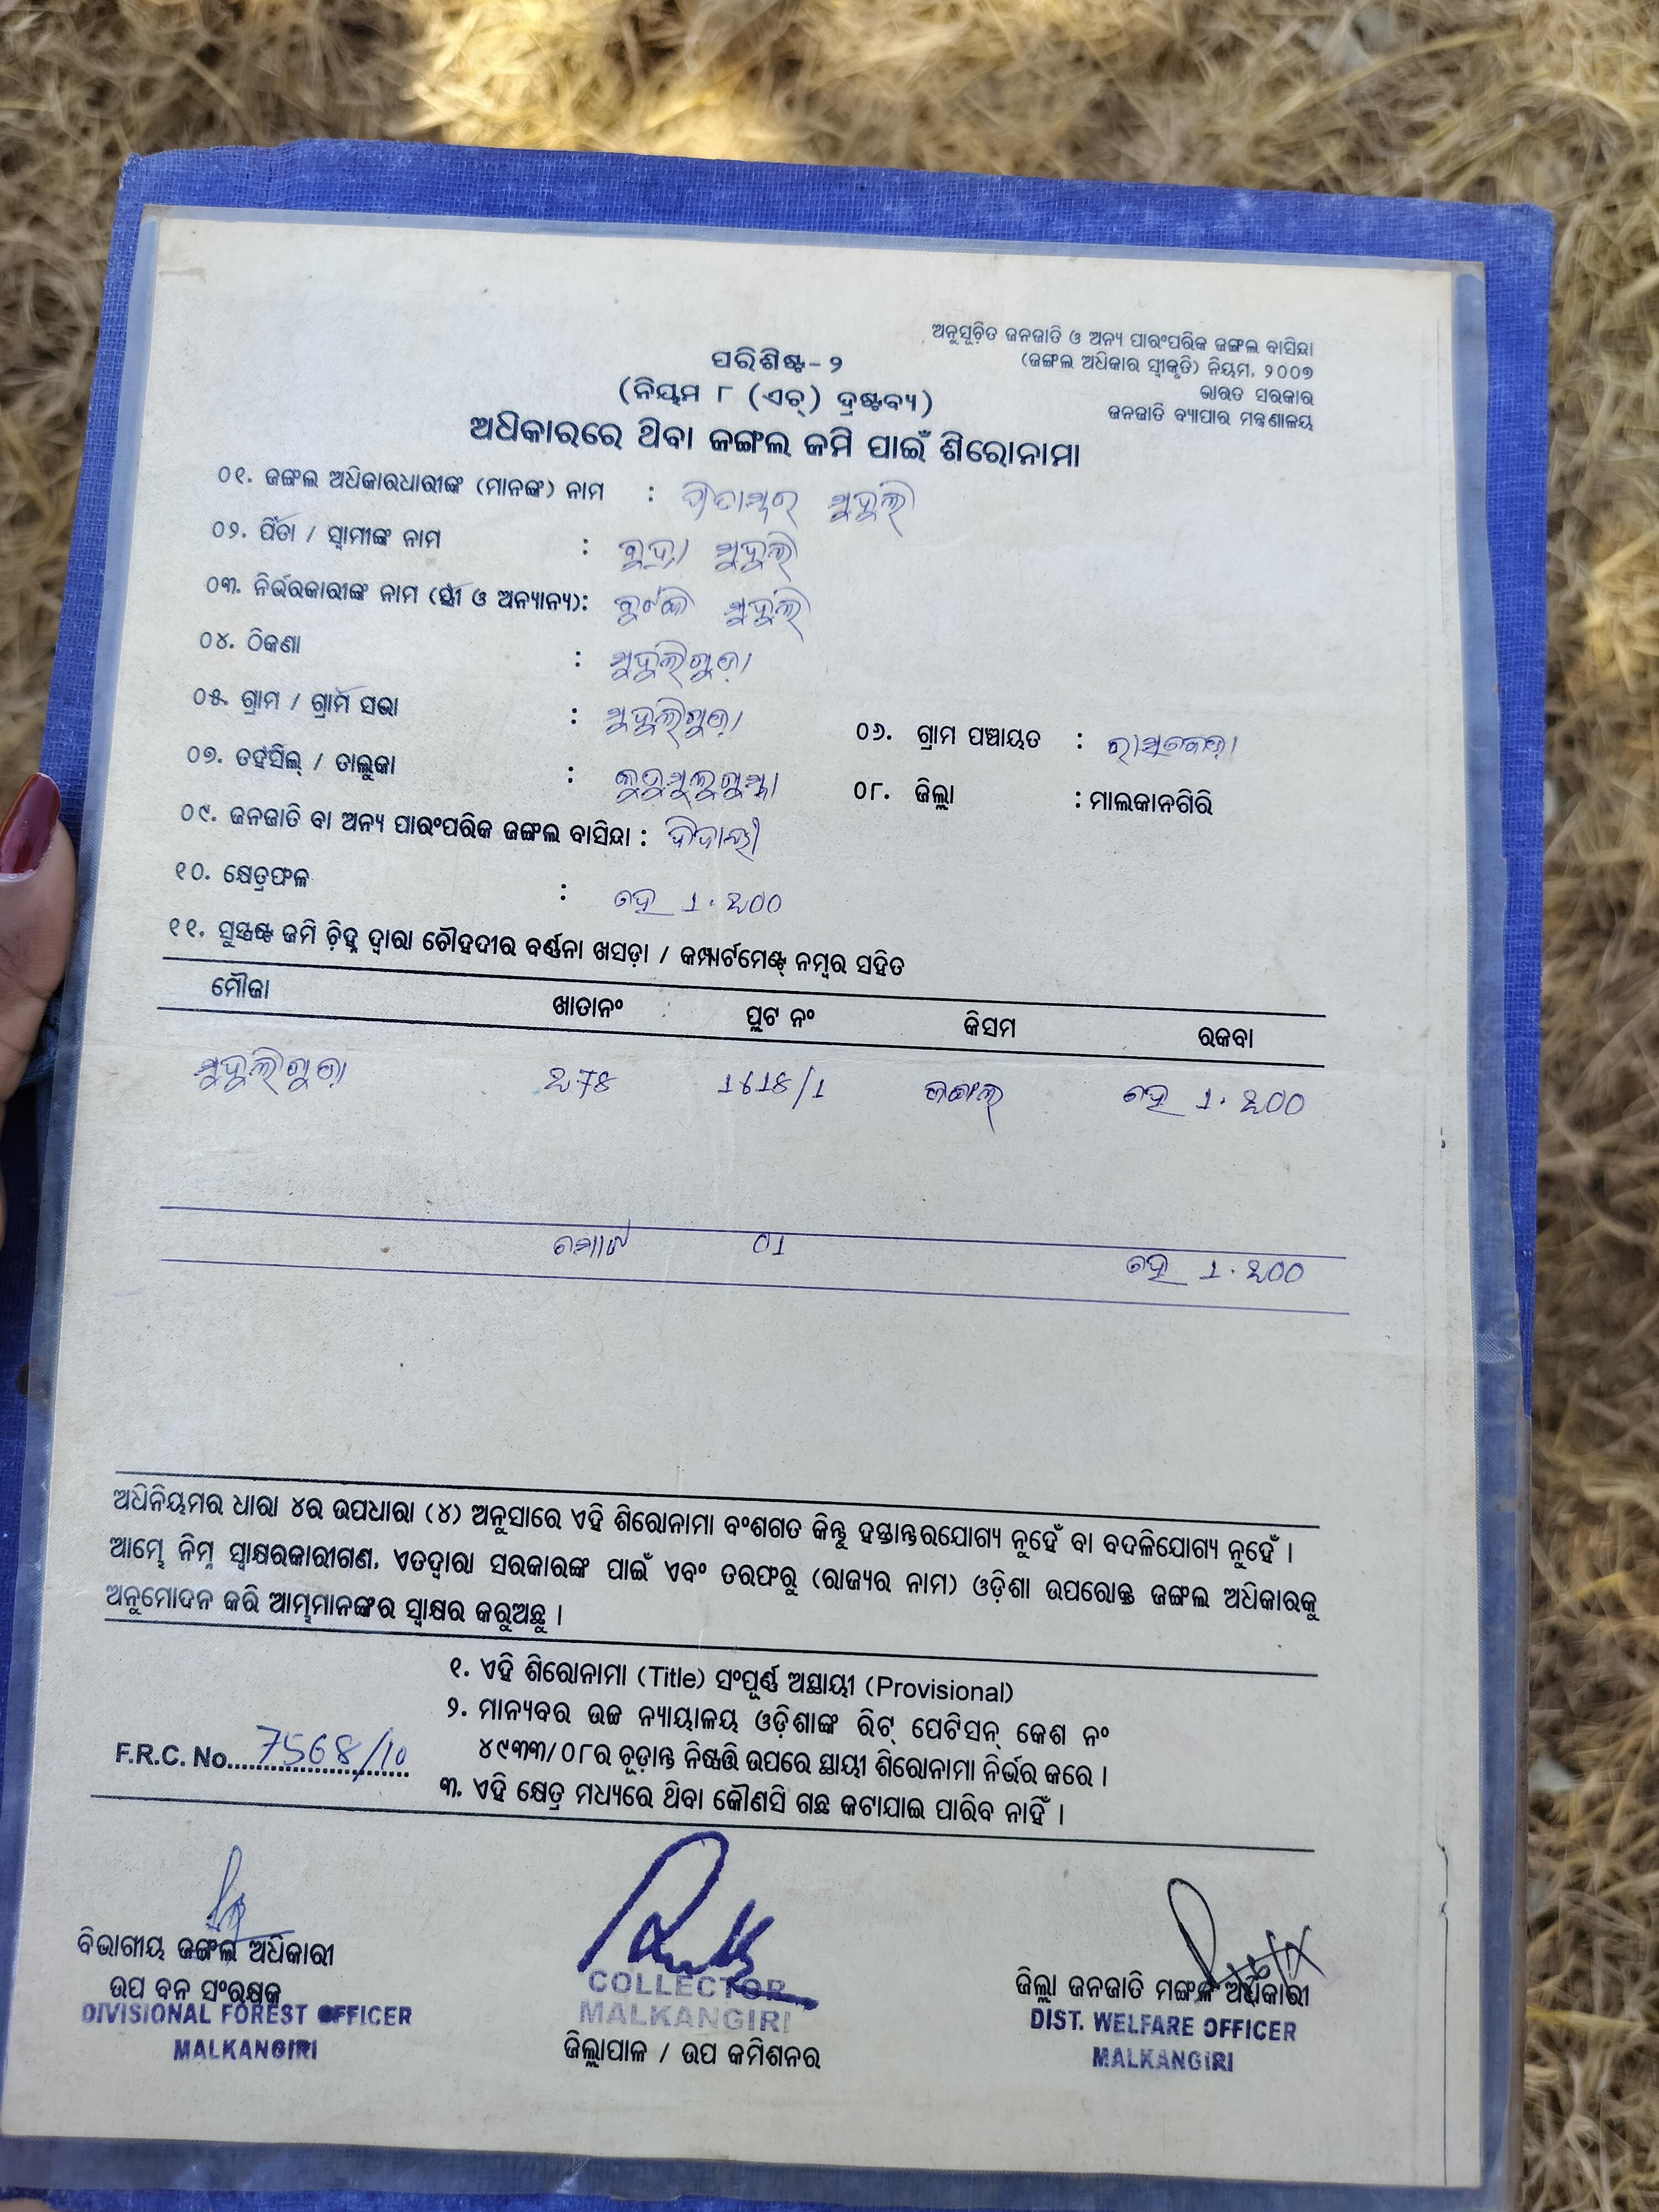 ଅନୁସୂଚିତ ଜନଜାତି ଓ ଅନ୍ୟ ପାରଂପରିକ ଜଙ୍ଗଲ ବାସିନ୍ଦା
(ଜଙ୍ଗଲ ଅଧିକାର ସ୍ୱୀକୃତି) ନିୟମ, ୨୦୦୭
ଭାରତ ସରକାର
ଜନଜାତି ବ୍ୟାପାର ମନ୍ତ୍ରଣାଳୟ
ପରିଶିଷ୍ଟ-୨
(ନିୟମ ୮ (ଏଚ୍) ଦ୍ରଷ୍ଟବ୍ୟ)
ଅଧିକାରରେ ଥିବା ଜଙ୍ଗଲ ଜମି ପାଇଁ ଶିରୋନାମା
୦୧. ଜଙ୍ଗଲ ଅଧିକାରଧାରୀଙ୍କ (ମାନଙ୍କ) ନାମ : ପିତାମ୍ବର ମୁଦୁଲି
୦୨. ପିତା / ସ୍ୱାମୀଙ୍କ ନାମ : ମୁଦୁଲି
୦୩. ନିର୍ଭରକାରୀଙ୍କ ନାମ (ସ୍ତ୍ରୀ ଓ ଅନ୍ୟାନ୍ୟ): ମୁଦୁଲି
୦୪. ଠିକଣା : ମୁଦୁଲିଗୁଡ଼ା
୦୫. ଗ୍ରାମ / ଗ୍ରାମ ସଭା : ମୁଦୁଲିଗୁଡ଼ା ୦୬. ଗ୍ରାମ ପଞ୍ଚାୟତ :
୦୭. ତହସିଲ୍ / ତାଲୁକା : କୁଡୁମୁଲୁଗୁମ୍ମା ୦୮. ଜିଲ୍ଲା : ମାଲକାନଗିରି
୦୯. ଜନଜାତି ବା ଅନ୍ୟ ପାରଂପରିକ ଜଙ୍ଗଲ ବାସିନ୍ଦା :
୧୦. କ୍ଷେତ୍ରଫଳ : ହେ 1.200
୧୧. ସୁସ୍ପଷ୍ଟ ଜମି ଚିହ୍ନ ଦ୍ୱାରା ଚୌହଦୀର ବର୍ଣ୍ଣନା ଖସଡ଼ା / କମ୍ପାର୍ଟମେଣ୍ଟ୍ ନମ୍ବର ସହିତ
ମୌଜା ଖାତାନଂ ପ୍ଲଟ ନଂ କିସମ ରକବା
ମୁଦୁଲିଗୁଡ଼ା 278 1618/1 ଜଙ୍ଗଲ ହେ 1.200
ମୋଟ 01 ହେ 1.200
ଅଧିନିୟମର ଧାରା ୪ର ଉପଧାରା (୪) ଅନୁସାରେ ଏହି ଶିରୋନାମା ବଂଶଗତ କିନ୍ତୁ ହସ୍ତାନ୍ତରଯୋଗ୍ୟ ନୁହେଁ ବା ବଦଳିଯୋଗ୍ୟ ନୁହେଁ ।
ଆମ୍ଭେ ନିମ୍ନ ସ୍ୱାକ୍ଷରକାରୀଗଣ, ଏତଦ୍ୱାରା ସରକାରଙ୍କ ପାଇଁ ଏବଂ ତରଫରୁ (ରାଜ୍ୟର ନାମ) ଓଡ଼ିଶା ଉପରୋକ୍ତ ଜଙ୍ଗଲ ଅଧିକାରକୁ
ଅନୁମୋଦନ କରି ଆମ୍ଭମାନଙ୍କର ସ୍ୱାକ୍ଷର କରୁଅଛୁ ।
୧. ଏହି ଶିରୋନାମା (Title) ସଂପୂର୍ଣ୍ଣ ଅସ୍ଥାୟୀ (Provisional)
୨. ମାନ୍ୟବର ଉଚ୍ଚ ନ୍ୟାୟାଳୟ ଓଡ଼ିଶାଙ୍କ ରିଟ୍ ପେଟିସନ୍ କେଶ ନଂ
୪୯୩୩/୦୮ର ଚୂଡ଼ାନ୍ତ ନିଷ୍ପତ୍ତି ଉପରେ ସ୍ଥାୟୀ ଶିରୋନାମା ନିର୍ଭର କରେ ।
F.R.C. No. 7568/10
୩. ଏହି କ୍ଷେତ୍ର ମଧ୍ୟରେ ଥିବା କୌଣସି ଗଛ କଟାଯାଇ ପାରିବ ନାହିଁ ।
ବିଭାଗୀୟ ଜଙ୍ଗଲ ଅଧିକାରୀ
ଉପ ବନ ସଂରକ୍ଷକ
DIVISIONAL FOREST OFFICER
MALKANGIRI
COLLECTOR
MALKANGIRI
ଜିଲ୍ଲାପାଳ / ଉପ କମିଶନର
ଜିଲ୍ଲା ଜନଜାତି ମଙ୍ଗଳ ଅଧିକାରୀ
DIST. WELFARE OFFICER
MALKANGIRI